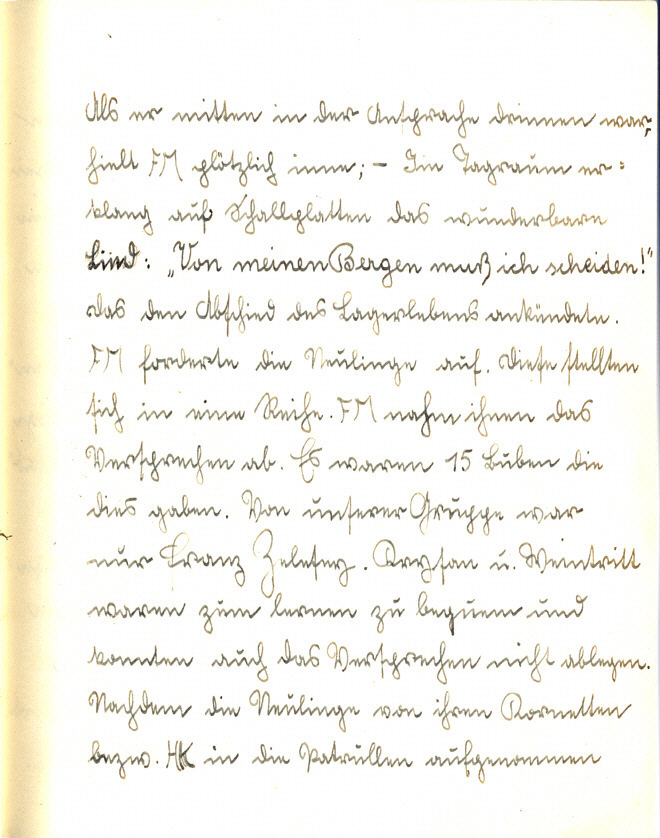 Als er mitten in der Ansprache drinnen war,
hielt FM plötzlich inne; – Im Tagraum er=
klang auf Schallplatten das wunderbare
Lied: „Von meinen Bergen muß ich scheiden!"
das den Abschied des Lagerlebens ankündete.
FM forderte die Neulinge auf. Diese stellten
sich in eine Reihe. FM nahm ihnen das
Versprechen ab. Es waren 15 Buben die
dies gaben. Von unserer Gruppe war
nur Franz Zelesey. Krysan u. Weintritt
waren zum lernen zu bequem und
konnten auch das Versprechen nicht ablegen.
Nachdem die Neulinge von ihren Kornetten
bezw. HK in die Patrullen aufgenommen